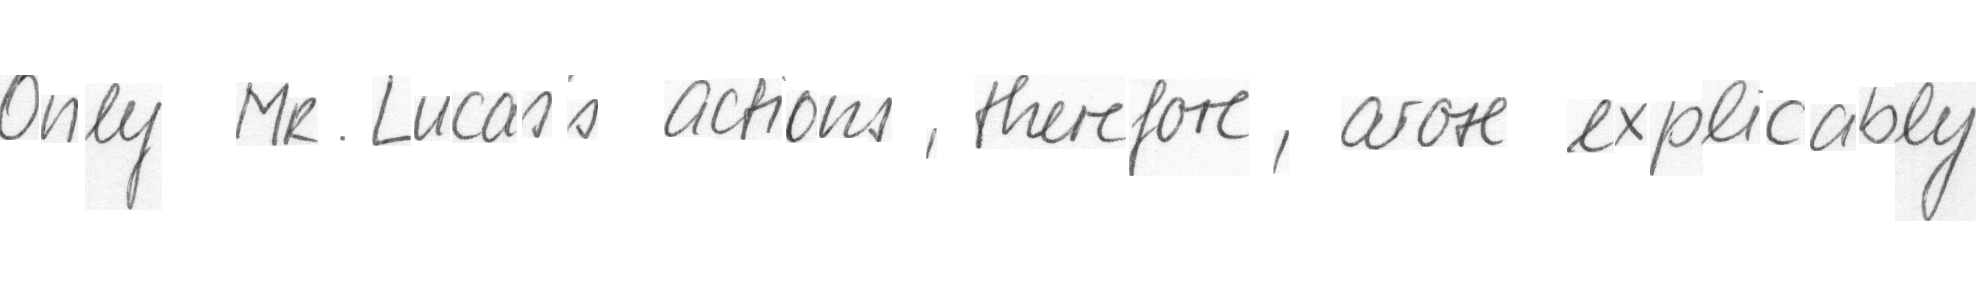 Only Mr. Lucas's actions, therefore, arose explicably